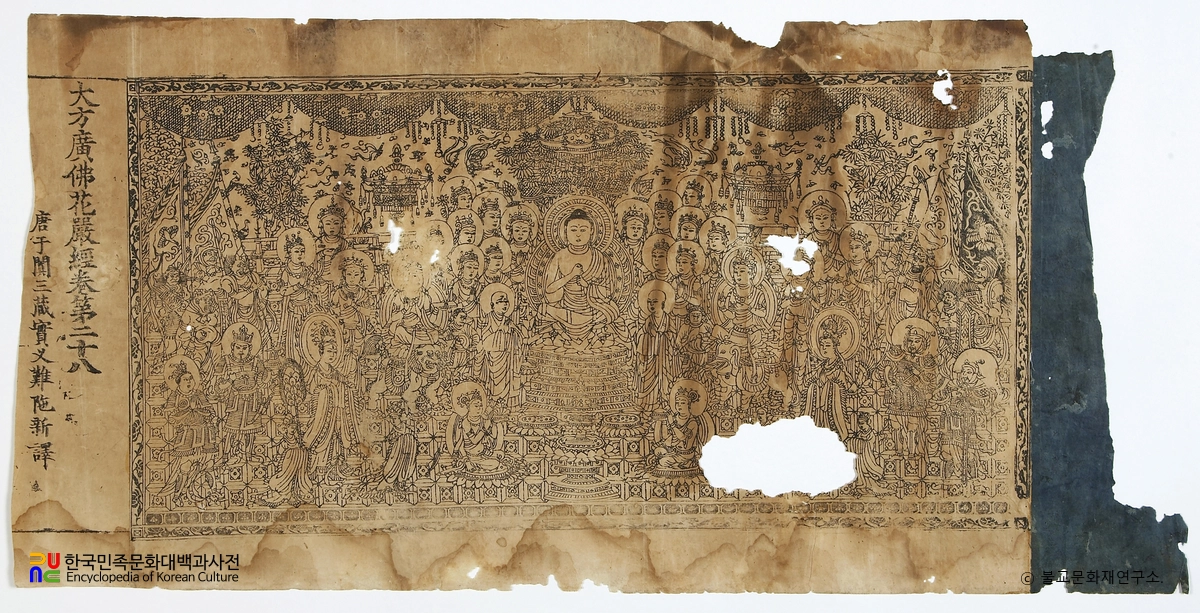 大方廣佛花嚴經卷第二十八
唐于闐三藏實叉難陁新譯
한국민족문화대백과사전
Encyclopedia of Korean Culture
ⓒ 불교문화재연구소